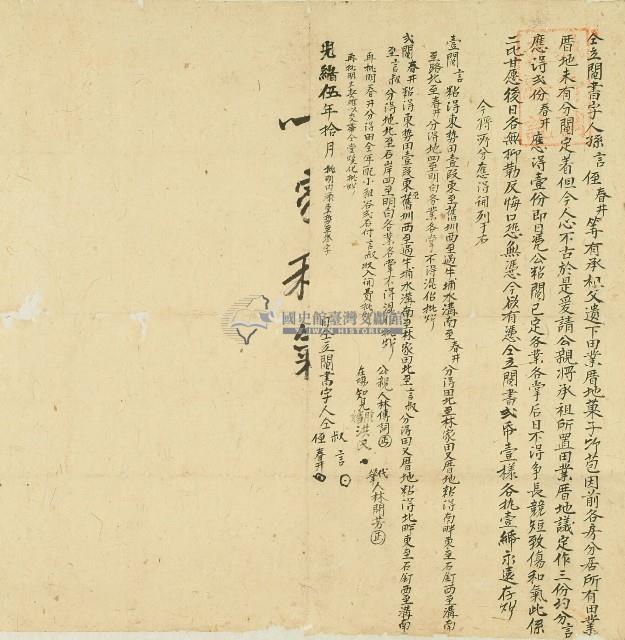 仝立鬮書字人孫言侄春井等有承祖父遺下田業厝地菓子所苞因前各房分居所有田業
厝地未有分鬮定着但今人心不古於是爰請公親將承祖所置田業厝地議定作三份均分言
應得弍份春井應得壹份即日憑公拈鬮已定各業各掌后日不得爭長競短致傷和氣此係
二比甘愿後日各無抑勒反悔口恐無憑今欲有憑仝立鬮書弍帋壹樣各执壹紙永遠存炤
今將所分應得詞列于右
壹鬮言拈得東勢田壹段東至舊圳西至過牛埔水溝南至春井分得田北至林家田又厝地拈得南畔東至石釘西至溝南
至路北至春井分得地四至明白各業各掌不得混佔批炤
弍鬮春井拈得東勢田壹段東至舊圳西至過牛埔水溝南至林家田北至言叔分得田又厝地拈得北畔東至石釘西至溝南
至言叔分得地北至石岸四至明白各業各掌不得混佔批炤
再批明春井分得田全年配小租谷弍石付言叔收入
公親人林傳詞
在場知見洪氏
代筆人林開芳
光緒伍年拾月 日仝立鬮書字人仝叔言
侄春井
國史館臺灣文獻館
TAIWAN HISTORICA